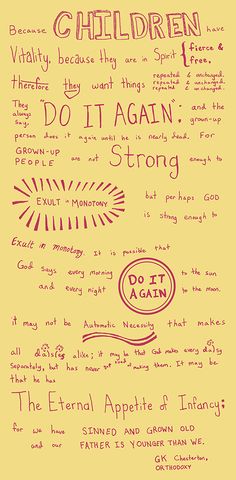 Because CHILDREN have
Vitality, because they are in Spirit { fierce &
free,
therefore they want things repeated & unchanged.
repeated & unchanged.
repeated & unchanged.
They always say, "DO IT AGAIN"; and the grown-up
person does it again until he is nearly dead. For
GROWN-UP PEOPLE are not Strong enough to
EXULT in MONOTONY but perhaps GOD
is strong enough to
Exult in monotony. It is possible that
God says every morning DO IT AGAIN to the sun
and every night to the moon.
it may not be Automatic Necessity that makes
all daisies alike; it may be that God makes every daisy
separately, but has never got tired of making them. It may be
that he has
The Eternal Appetite of Infancy;
for we have SINNED AND GROWN OLD
and our FATHER IS YOUNGER THAN WE.
GK Chesterton,
ORTHODOXY